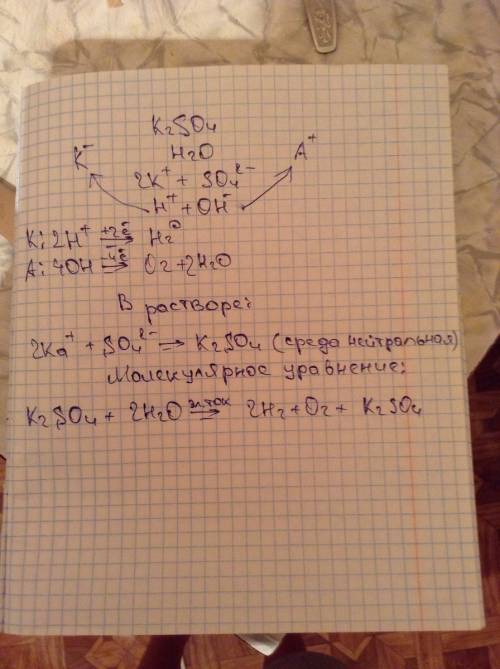 K₂SO₄
K⁻ H₂O A⁺
2K⁺ + SO₄²⁻
H⁺ + OH⁻
K: 2H⁺ +2ē→ H₂⁰
A: 4OH⁻ -4ē→ O₂ + 2H₂O
В растворе:
2Ka⁺ + SO₄²⁻ → K₂SO₄ (среда нейтральная)
Молекулярное уравнение:
K₂SO₄ + 2H₂O эл.ток→ 2H₂ + O₂ + K₂SO₄